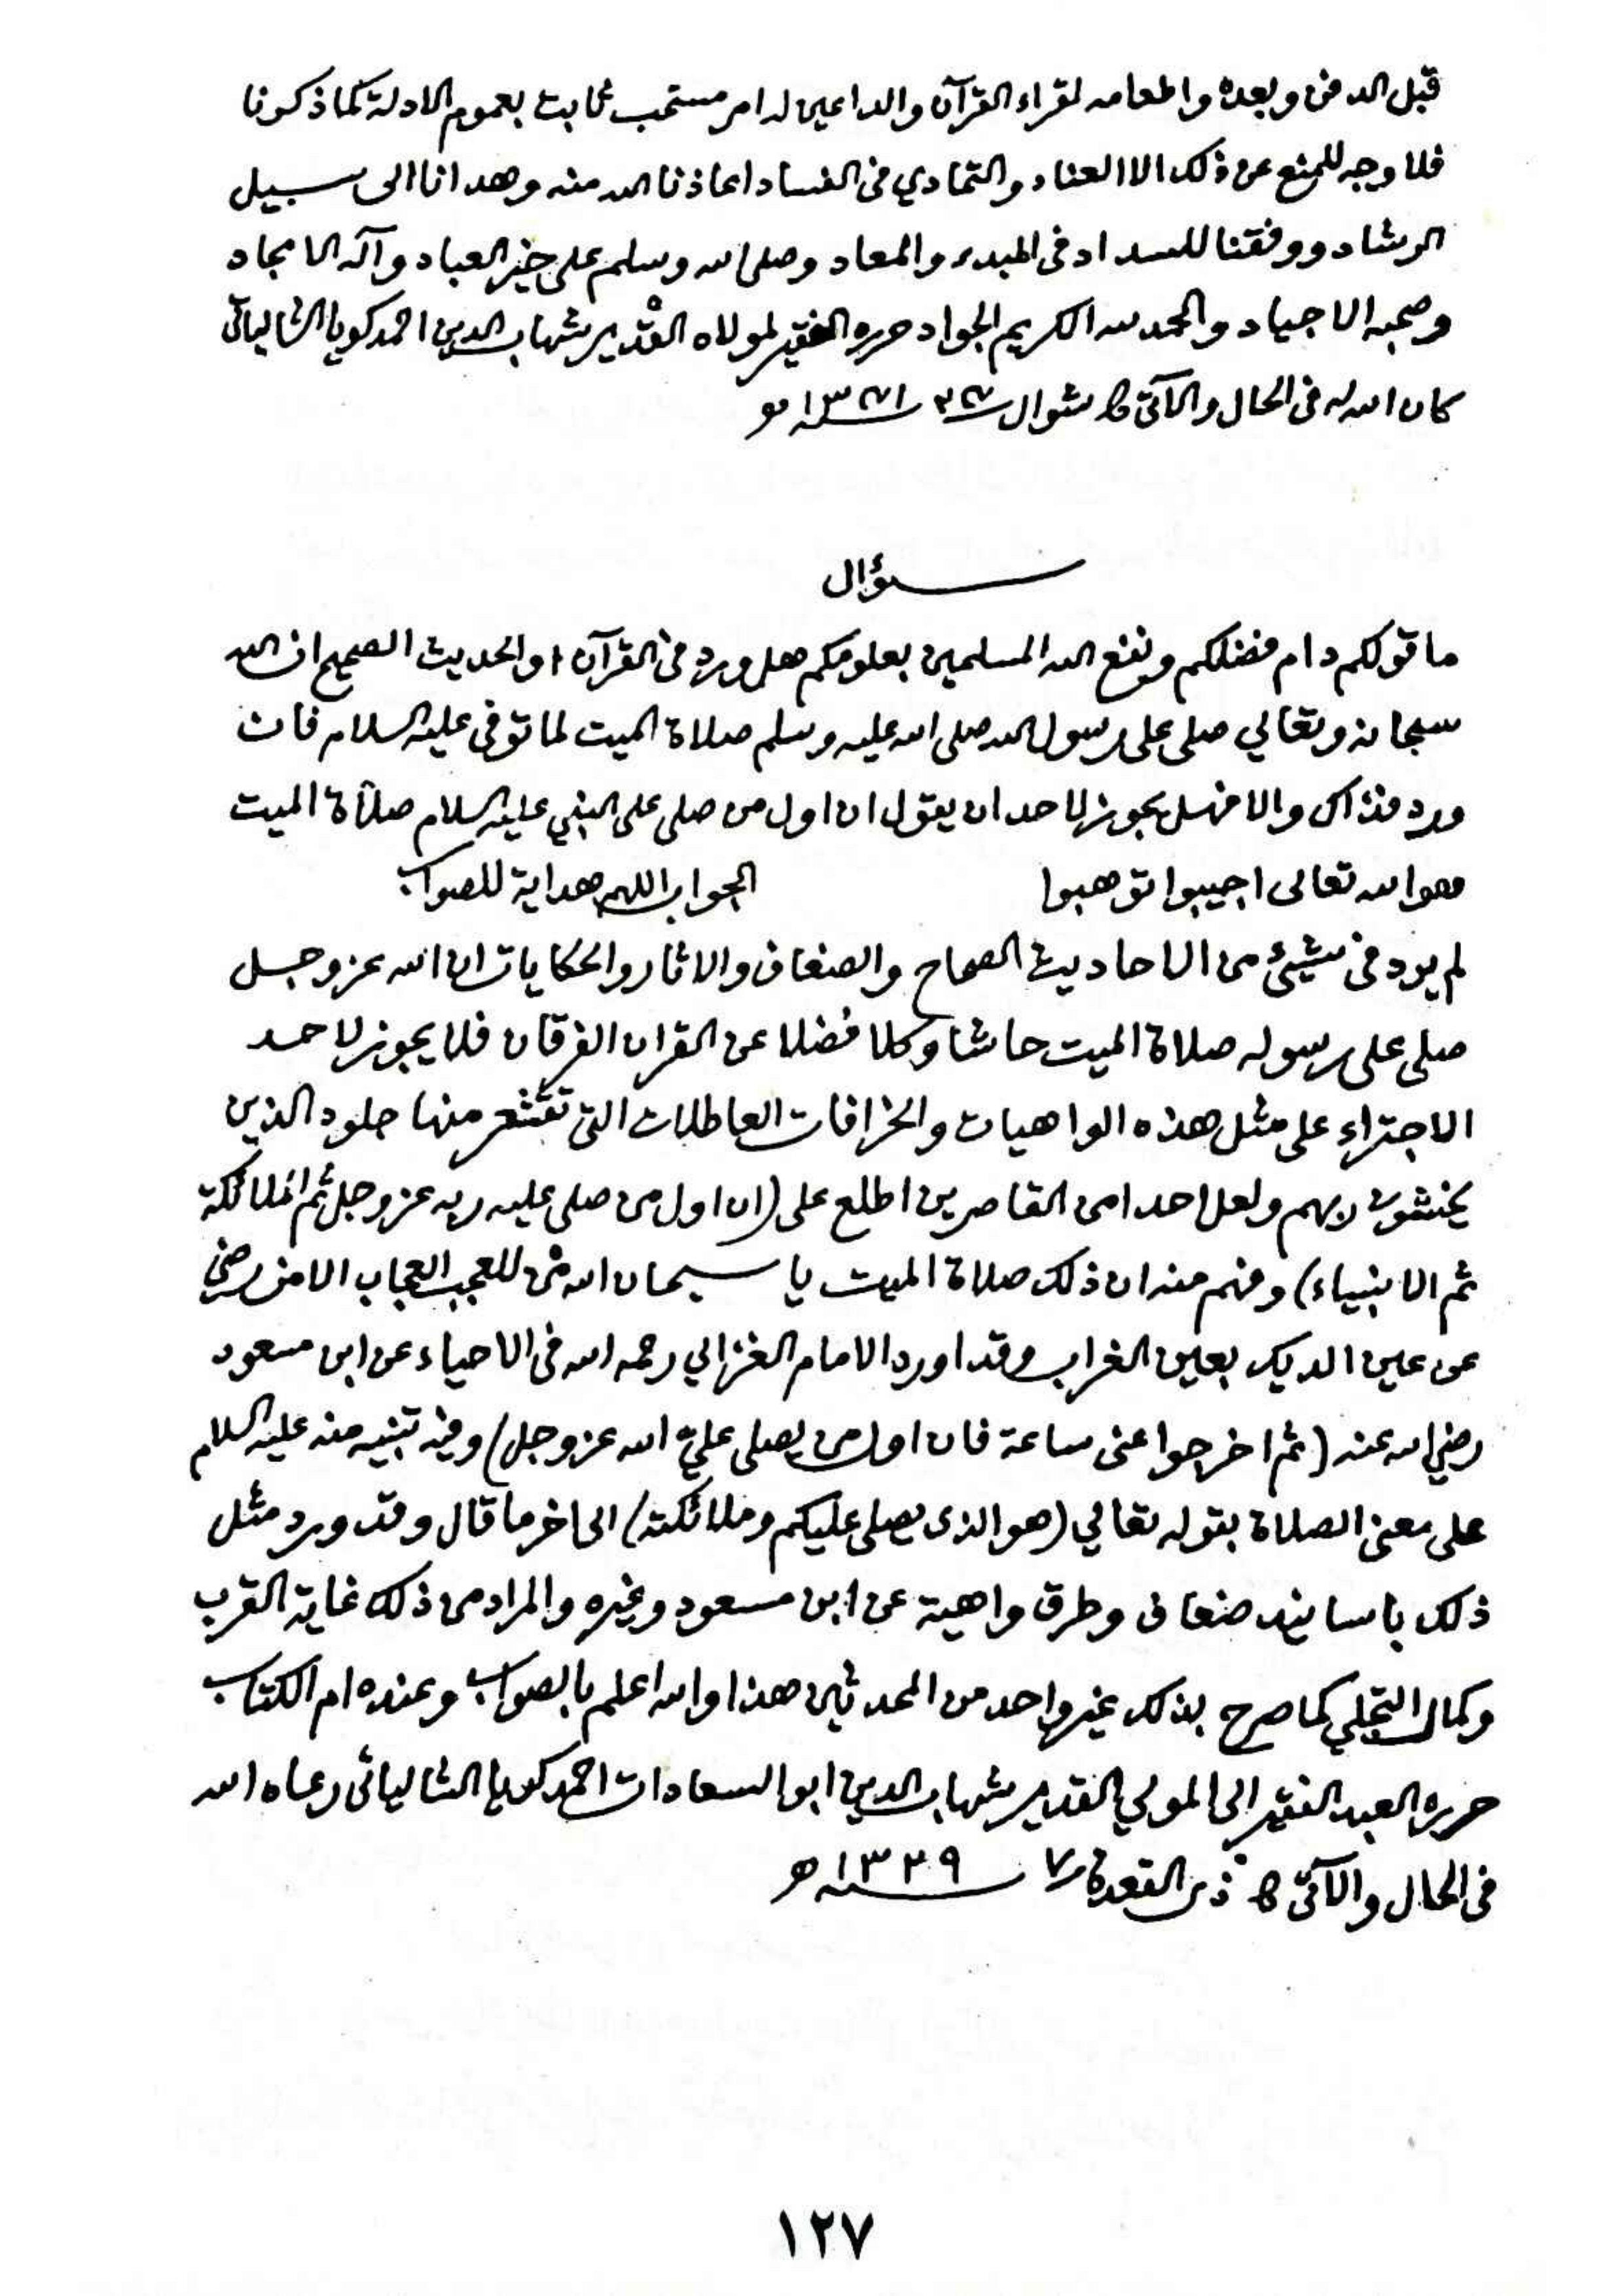 قبل الدفن وبعده واطعامه لقراء القرآن والداعين له امر مستحب ثابت بعموم الادلة كما ذكرنا
فلا وجه للمنع عن ذلك الا العناد والتمادي فى الفساد اعاذنا الله منه وهدانا الى سبيل
الرشاد ووفقنا للسداد فى المبدء والمعاد وصلى الله وسلم على خير العباد وآله الامجاد
وصحبه الاجياد والحمد لله الكريم الجواد حرره الفقير لمولاه القدير شهاب الدين احمد كويا الشالياتى
كان الله له فى الحال والآتى شوال
سؤال
ما قولكم دام فضلكم ونفع الله المسلمين بعلومكم هل ورد فى القرآن او الحديث الصحيح ان الله
سبحانه وتعالي صلى على رسول الله صلى الله عليه وسلم صلاة الميت لما توفى عليه السلام فان
ورد فذاك والا فهل يجوز لاحد ان يقول ان اول من صلى على النبي عليه السلام صلاة الميت
هو الله تعالى اجيبوا توهبوا
الجواب اللهم هداية للصواب
لم يرد فى شيئ من الاحاديث الصحاح والضعاف والاثار والحكايات ان الله عز وجل
صلى على رسوله صلاة الميت حاشا وكلا فضلا عن القران الفرقان فلا يجوز لاحد
الاجتراء على مثل هذه الواهيات والخرافات العاطلات التى تقشعر منها جلود الذين
يخشون ربهم ولعل احدا من القاصرين اطلع على (ان اول من صلى عليه ربه عز وجل ثم الملائكة
ثم الانبياء) وفهم منه ان ذلك صلاة الميت يا سبحان الله هٰن للعجب العجاب الا من رضى
عن عين الديك بعين الغراب وقد اورد الامام الغزالي رحمه الله فى الاحياء عن ابن مسعود
رضي الله عنه (ثم اخرجوا عنى ساعة فان اول من يصلى عليّ الله عز وجل) وفيه تنبيه منه عليه السلام
على معنى الصلاة بقوله تعالي (هو الذى يصلى عليكم وملائكته) الى اخر ما قال وقد ورد مثل
ذلك باسانيد ضعاف وطرق واهية عن ابن مسعود وغيره والمراد من ذلك غاية القرب
وكمال التجلي كما صرح بذلك غير واحد من المحدثين هذا والله اعلم بالصواب وعنده ام الكتاب
حرره العبد الفقير الى المولي القدير شهاب الدين ابو السعادات احمد كويا الشالياتى رعاه الله
فى الحال والآتى ذى القعدة ٧ ١٣٣٩ ھ
١٢٧